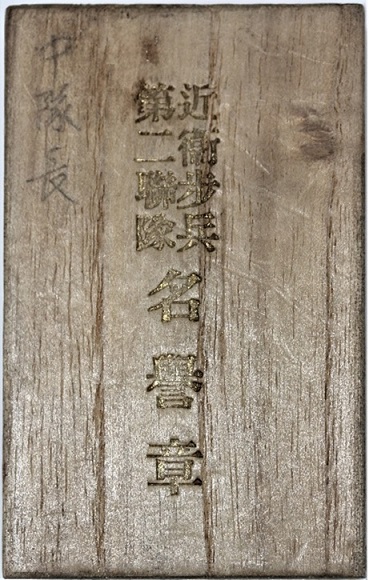 近衛歩兵
第二聯隊
名誉章
中隊長